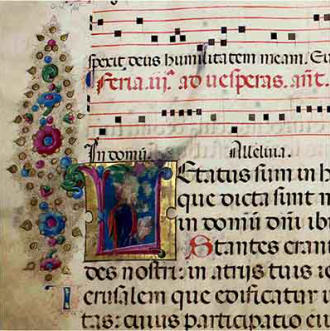 spexit deus humilitatem meam. Eu
Feria .iij. ad vesperas. añt.
In domū. Alleluia.
Letatus sum in h
que dicta sunt m
in domū dñi ibi
Stantes erant
des nostri: in atrijs tuis ie
Ierusalem que edificatur u
tas: cuius participatio eiu